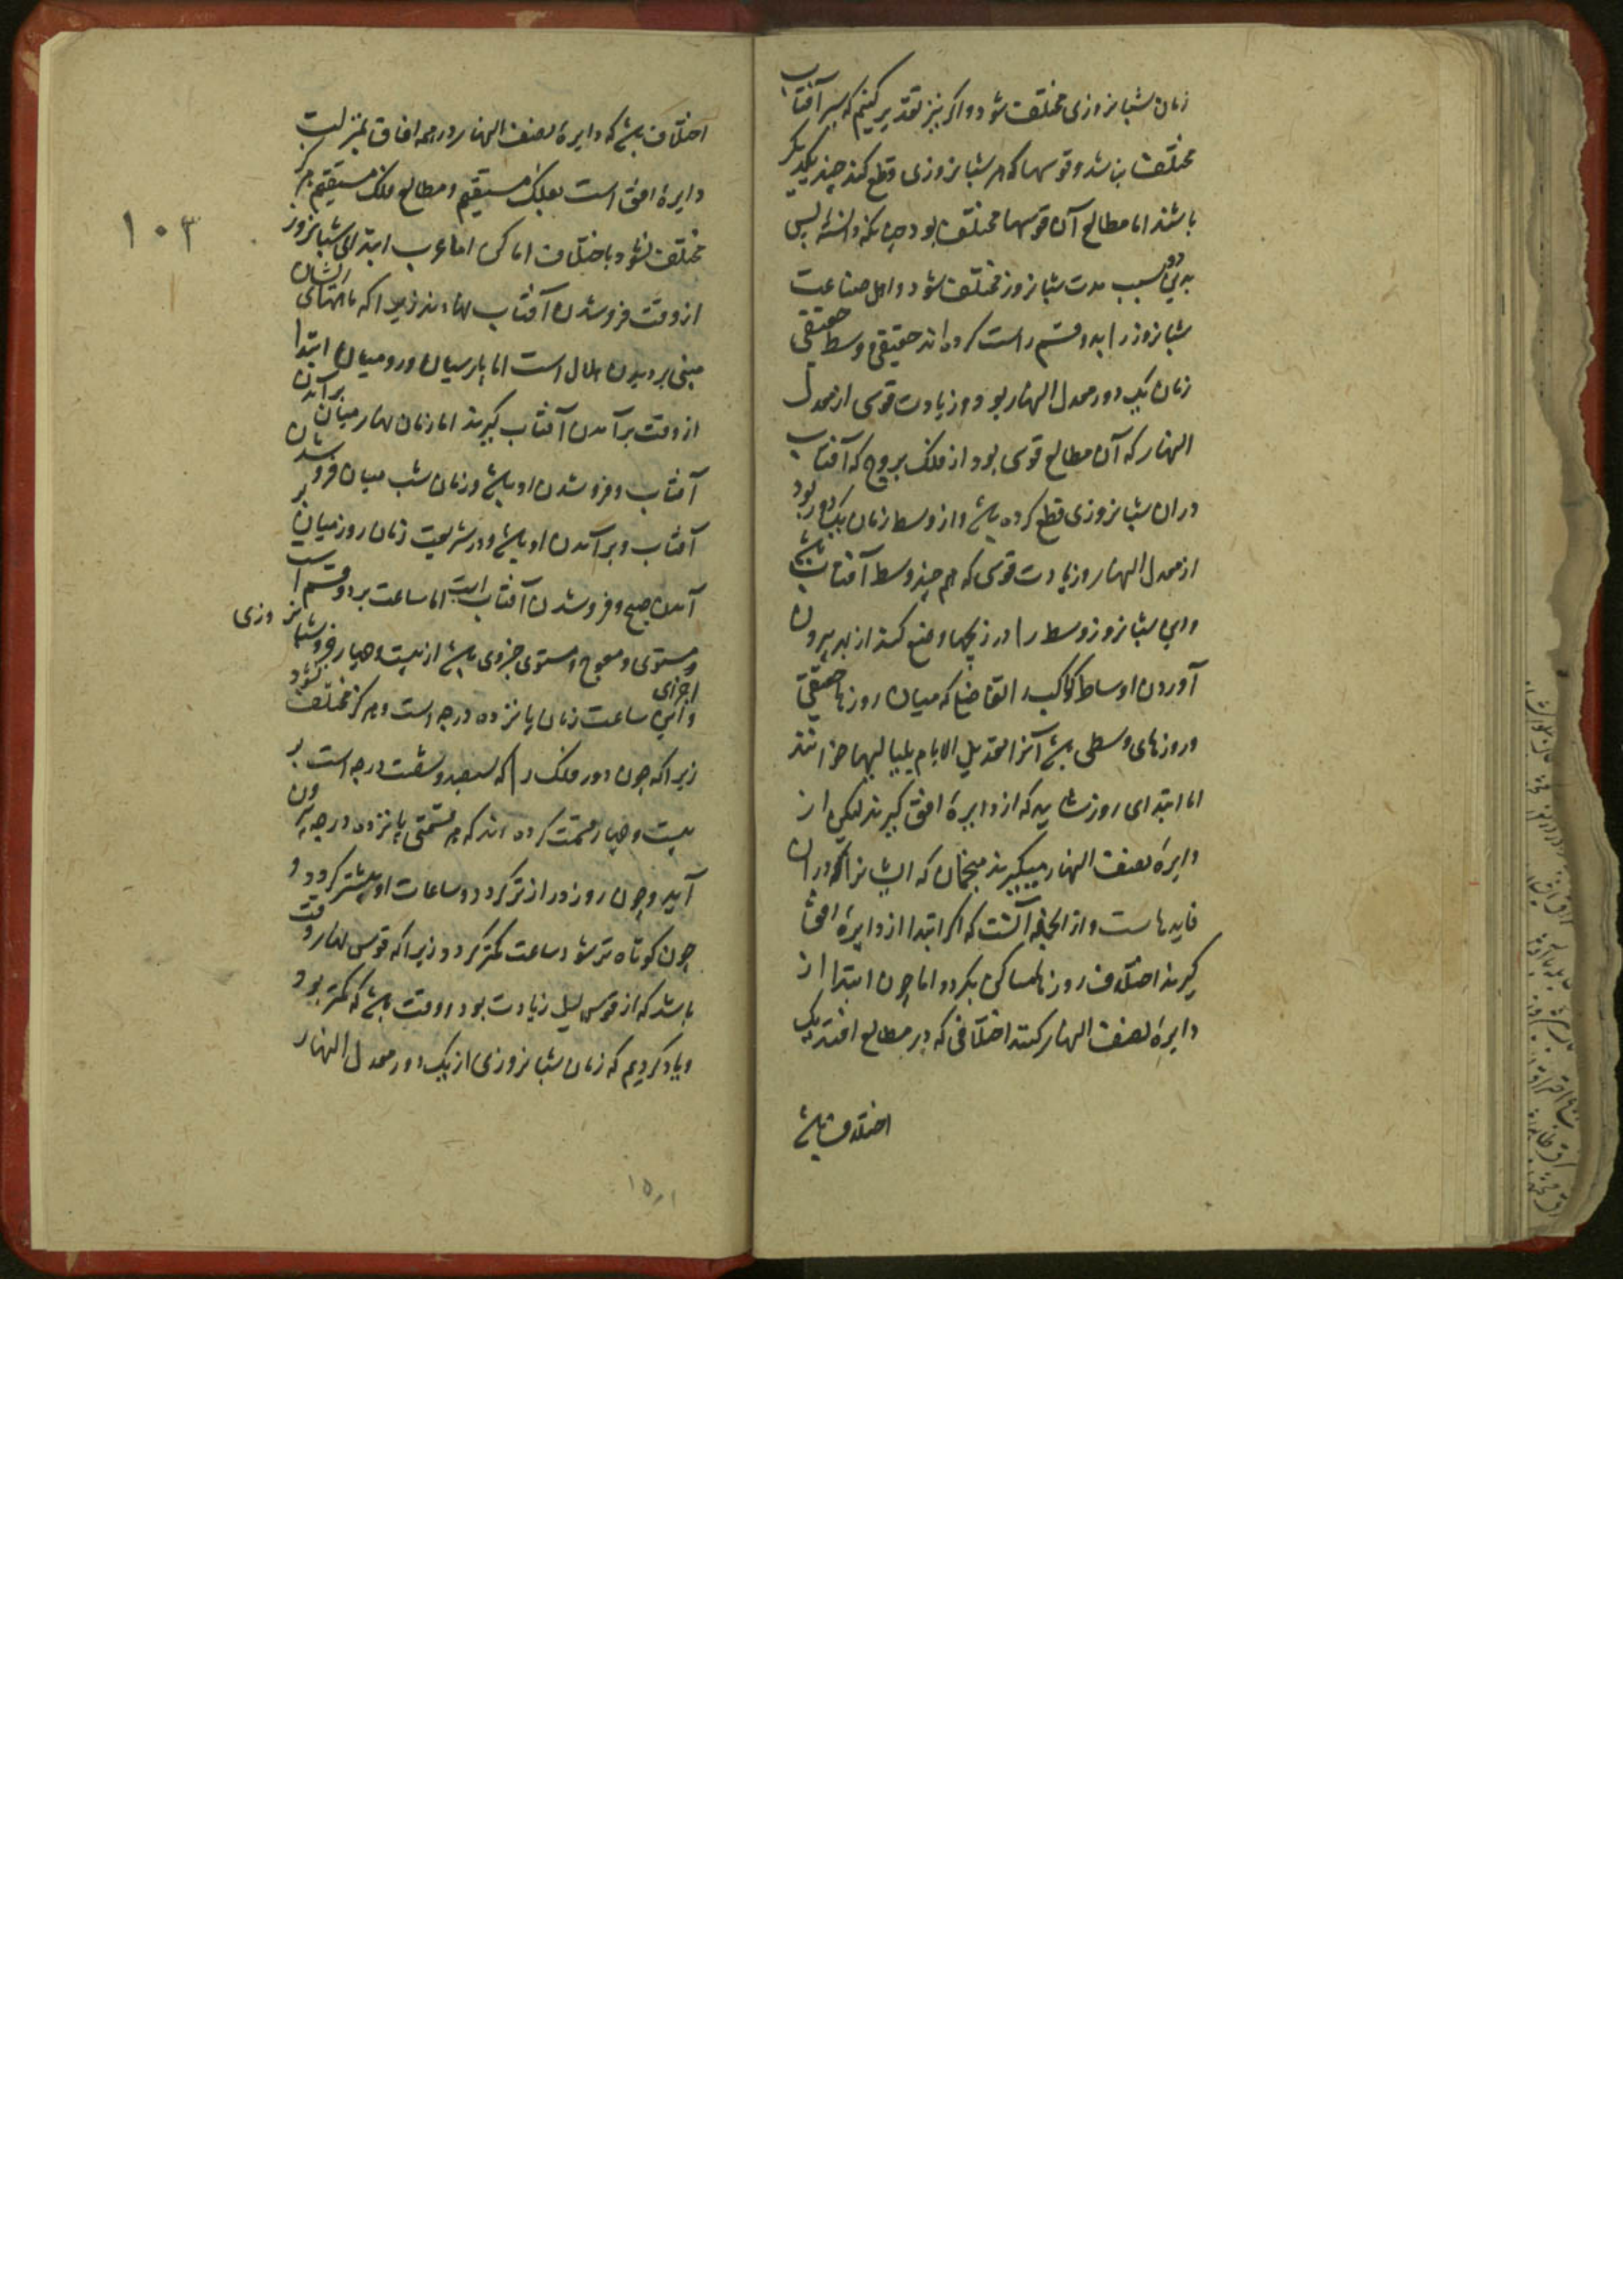 زمان شبانروزی مختلف شود و اگر نیز تقدیر کنیم که سیر آفتاب
مختلف نباشد و قوسها که هر شبانروزی قطع کند چند یکدیگر
باشند اما مطالع آن قوسها مختلف بود چنانکه دانسته پس
بدین دو سبب مدت شبانروز مختلف شود و اهل صناعت
شبانروز را بدو قسم راست کرده اند حقیقی و وسط حقیقی
زمان یک دور معدل النهار بود و زیادت قوسی از معدل
النهار که آن مطالع قوسی بود از فلک بروج که آفتاب
در ان شبانروزی قطع کرده باشد و از وسط زمان یک دور بود
از معدل النهار و زیادت قوسی که هم چند وسط آفتاب باشد
و این شبانروز وسط را در زیجها وضع کنند از بهر بیرون
آوردن اوساط کواکب و التفاضل که میان روزها حقیقی
و روزهای وسطی باشد آنرا تعدیل الایام بلیالیها خوانند
اما ابتدای روز شاید که از دایرۀ افق گیرند لیکن از
دایرۀ نصف النهار میگیرند منجمان که ایشانرا در ان
فایدهاست و از الجمله آنست که اگر ابتدا از دایرۀ افق
گیرند اختلاف روزها بمساکن بگردد اما چون ابتدا از
دایرۀ نصف النهار کنند اختلافی که در مطالع افتد یک
اختلاف باشد
اختلاف باشد که دایرۀ نصف النهار در همه افاق بمنزلت
دایرۀ افق است بفلک مستقیم و مطالع فلک مستقیم هرگز
مختلف نشود باختلاف اماکن اما عرب ابتدای شبانروز
از وقت فروشدن آفتاب نهادند زیرا که ماههای ایشان
مبنی بر دیدن هلال است اما پارسیان و رومیان ابتدا
از وقت برآمدن آفتاب گیرند اما زمان نهار میان برآمدن
آفتاب و فروشدن او باشد و زمان شب میان فروشدن
آفتاب و برآمدن او باشد و در شریعت زمان روز میان بر
آمدن صبح و فروشدن آفتاب است اما ساعت بر دو قسم است
مستوی و معوج و مستوی جزوی باشد از بیست و چهار جزو شبانروزی
و اجزای این ساعت زمان پانزده درجه است و هرگز مختلف نشود
زیرا که چون دور فلک را که سیصد و شصت درجه است بر
بیست و چهار قسمت کرده اند که هر قسمتی پانزده درجه بیرون
آید و چون روز دراز تر گردد و ساعات او بیشتر گردد و
چون کوتاه تر شود ساعت کمتر گردد زیرا که قوس نهار وقت
باشد که از قوس لیل زیادت بود و وقت باشد که کمتر بود
و یاد کردیم که زمان شبانروزی از یک دور معدل النهار
۱۰۳